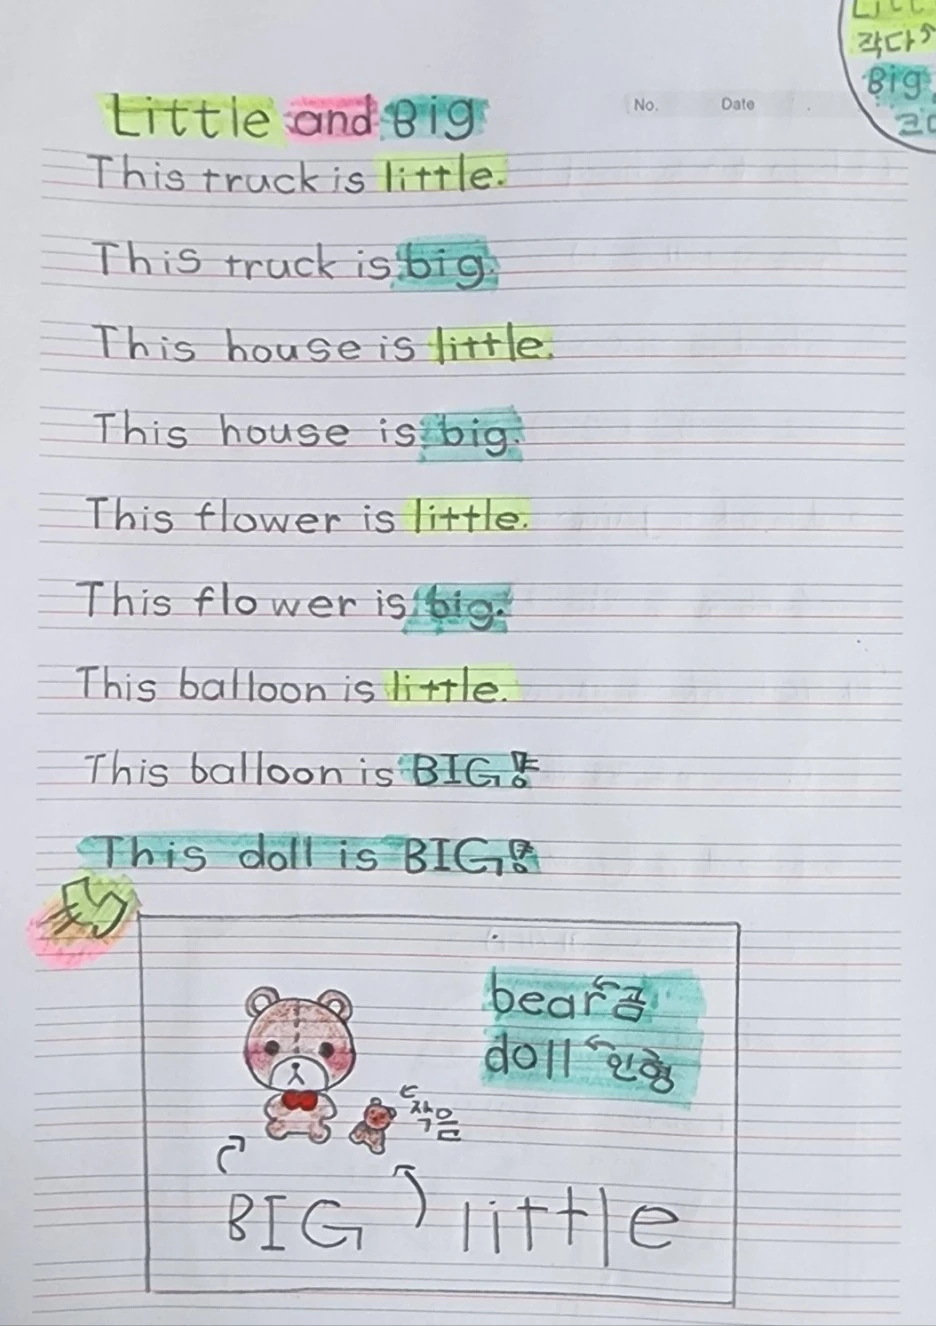 작다
Big
No. Date
Little and Big
This truck is little.
This truck is big.
This house is little.
This house is big.
This flower is little.
This flower is big.
This balloon is little.
This balloon is BIG!
This doll is BIG!
bear 곰
doll 인형
작음
BIG little